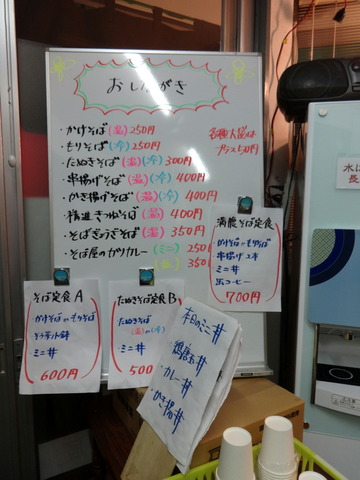 おしながき
・かけそば(温)250円
・もりそば(冷)250円
・たぬきそば(温)(冷)300円
・串揚げそば(温)(冷)400円
・かき揚げそば(温)(冷)400円
・精進きつねそば(温)400円
・そばぎょうざそば(温)350円
・そば屋のカリカレー(ミニ)250
350
各種大盛は
プラス50円
満農そば定食
かけそばorもりそば
串揚げ2本
ミニ丼
缶コーヒー
700円
そば定食A
かけそばorもりそば
ミニ丼
600円
たぬきそば定食B
たぬきそば
(温)or(冷)
ミニ丼
500
本日のミニ丼
・カレー丼
・かき揚丼
水は
長